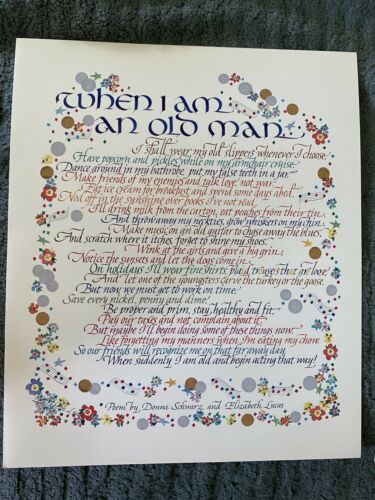 When I am
an old man
I shall wear my old slippers whenever I choose,
Have popcorn and pickles while on my armchair cruise.
Dance around in my bathrobe, put my false teeth in a jar.
Make friends of my enemies and talk love, not war.
Eat ice cream for breakfast and spend some days abed.
Nod off in the sunshine over books I've not read.
I'll drink milk from the carton, eat peaches from their tin,
And throw away my neckties, grow whiskers on my chin.
Make music on an old guitar to chase away the blues,
And scratch where it itches, forget to shine my shoes.
Wink at the girls and give a big grin.
Notice the sunsets and let the dogs come in.
On holidays I'll wear fine shirts, plaid trousers that are loose,
And let one of the youngsters carve the turkey or the goose.
But now, we must get to work on time.
Save every nickel, penny and dime.
Be proper and prim, stay healthy and fit,
Pay our taxes and not complain about it.
But maybe I'll begin doing some of these things now.
Like forgetting my manners when I'm eating my chow.
So our friends will recognize me on that far away day
When suddenly I am old and begin acting that way!
Poem by Donna Schwarz and Elizabeth Lucas